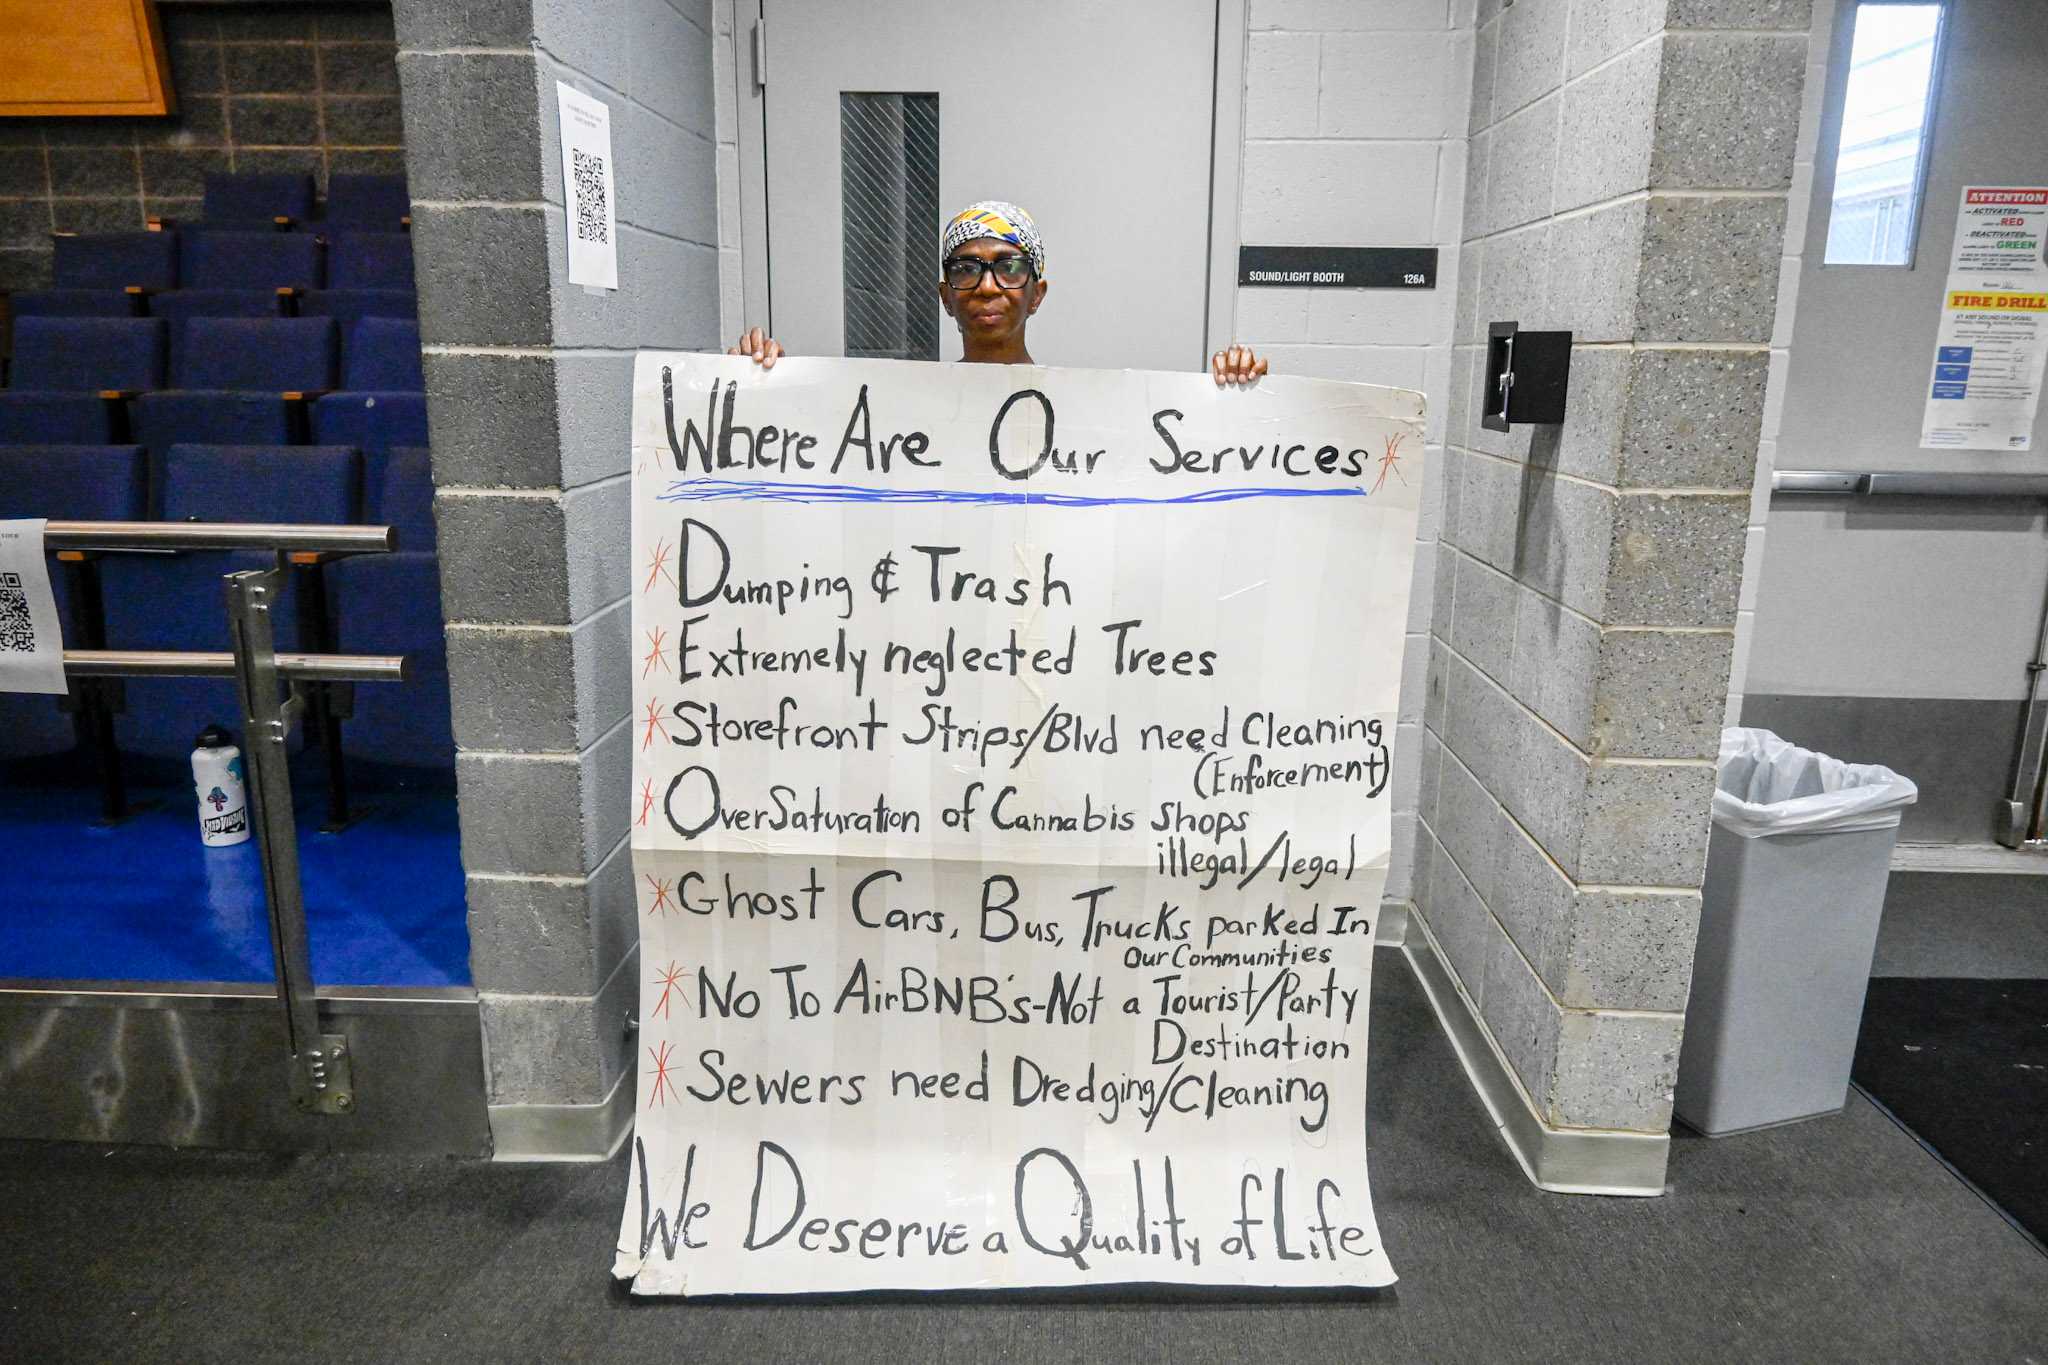 Where Are Our Services
* Dumping & Trash
* Extremely neglected Trees
* Storefront Strips/Blvd need Cleaning
(Enforcement)
* OverSaturation of Cannabis Shops
illegal/legal
* Ghost Cars, Bus, Trucks parked In
Our Communities
* No To AirBNB's-Not a Tourist/Party
Destination
* Sewers need Dredging/Cleaning
We Deserve a Quality of Life
SOUND/LIGHT BOOTH 126A
ATTENTION
ACTIVATED
RED
DEACTIVATED
GREEN
FIRE DRILL